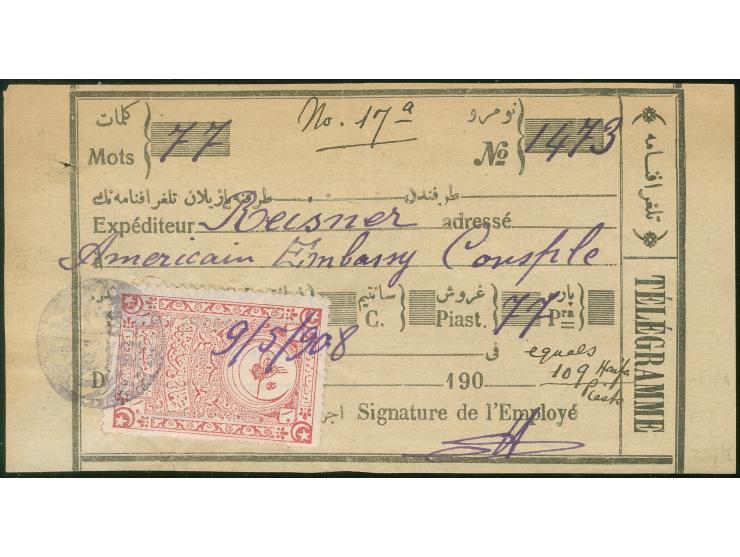 كلمات No. 17ª نومرو
Mots 77 № 1473
طرفندن طرفنه يازيلان تلغرافنامه نك
Expéditeur Reisner adressé
Americain Embassy Consple
سانتيم غروش پاره
C. Piast. 77 Pra
9/5/908
فى equals
D 190 109 Haifa
Piasts
Signature de l'Employé
تلغرافنامه
TÉLÉGRAMME